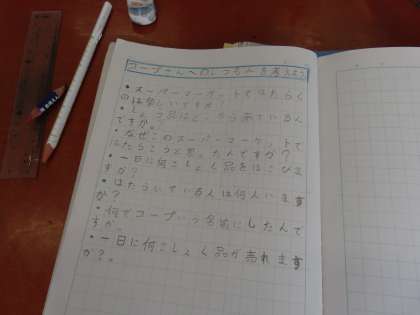 コープさんへのしつもんを考えよう
・スーパーマーケットではたらく
のは楽しいですか?
・しょう品はどこから来ているん
ですか。
・なぜこのスーパーマーケットで
はたらこうと思ったんですか?
・一日に何こしょう品をはこびま
すか?
・はたらいている人は何人います
か?
・何でコープという名前にしたんで
すか。
・一日に何こしょう品が売れます
か?。